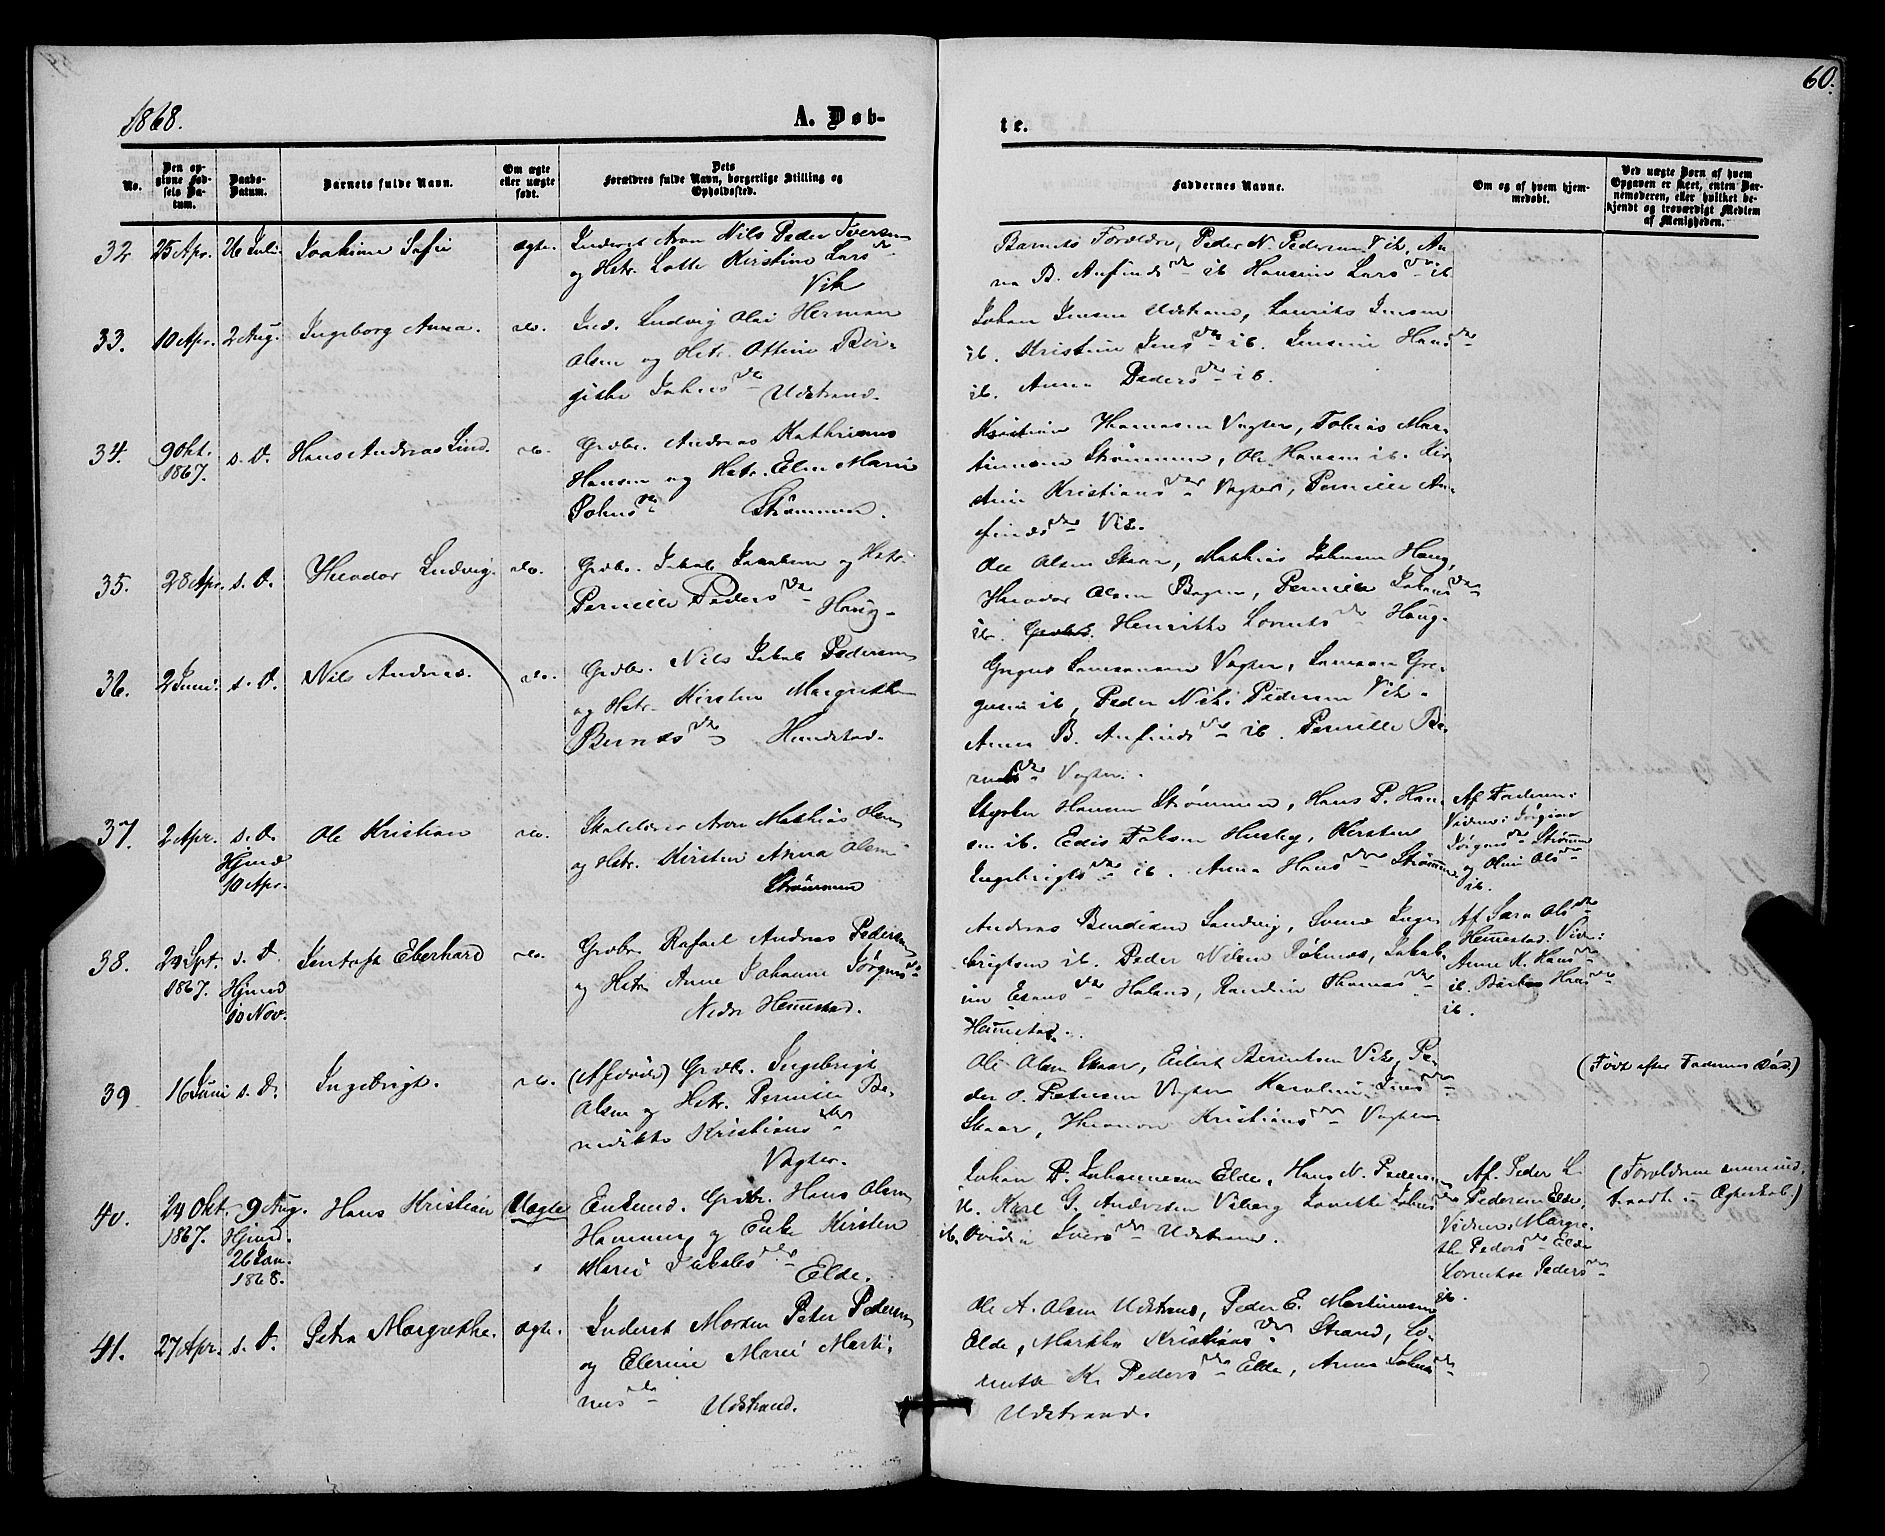 60.
1868.
A. Døb-
te.
No.
Den op-
givne Fød-
sels Da-
tum.
Daabs-
Datum.
Barnets fulde Navn.
Om ægte
eller uægte
født.
Dets
Forældres fulde Navn, borgerlige Stilling og
Opholdssted.
Faddernes Navne.
Om og af hvem hjem-
medøbt.
Ved uægte Børn af hvem
Opgaven er skeet, enten Bar-
nemoderen, eller hvilket be-
kjendt og troværdigt Medlem
af Menigheden.
32
25 Apr.
26 Juli
Joakime Sofie
ægte.
Inderst Aron Nils Peder Iversen
og Hstr. Lotte Kirstine Larsdr
Vik
Barnets Forældre, Peder N. Pedersen Vik, An-
na B. Anfindsdr ib Hansine Larsdr ib
33.
10 Apr.
2 Aug.
Ingeborg Anna.
do.
Ind. Ludvig Olai Herman
Olsen og Hstr. Ottine Bir-
githe Johnsdr Udstrand.
Johan Jensen Udstrand, Laurits Jensen
ib. Kristine Jensdr ib. Jensine Hansdr
ib. Anna Pedersdr ib.
34.
9 Okt.
1867.
s. D.
Hans Andreas Lind.
do.
Grdbr. Andreas Kathrinus
Hansen og Hstr. Elen Marie
Johnsdr Strømmen.
Kristian Thomasen Vagter, Tobias Mar-
tinusen Strømmen, Ole Hansen ib. Kir-
stine Kristiansdr Vagter, Pernille An-
findsdr Vik.
35.
28 Apr.
s. D.
Theodor Ludvig.
do.
Grdbr. Jakob Jakobsen og Hstr.
Pernille Pedersdr Haug.
Ole Olsen Skaar, Mathias Johnsen Haug,
Theodor Olsen Bogen, Pernille Jakobsdr
ib. Grdbr. Henrikke Lorentsdr Haug.
36.
2 Juni.
s. D.
Nils Andreas.
do.
Grdbr. Nils Jakob Pedersen
og Hstr. Kirsten Margrethe
Berntsdr Hundstad.
Gregus Lamesen Vagter, Gre-
gusen ib, Peder Nik. Pedersen Vik.
Anna B. Anfindsdr ib. Pernille Be-
rntsdr Vagter.
37.
2 Apr.
s. D.
Hjmd
10 Apr.
Ole Kristian
do.
Skolelærer Aron Mathias Olsen
og Hstr. Kirsten Anna Olsen
Strømmen
Styrker Hansen Strømmen, Hans P. Han-
sen ib. Edis Falsen Husby, Kirsten
Ingebrigtsdr ib. Anna Hansdr Strømmen
Af Faderen:
Vidner: Jørgine
Jørgensdr Strømmen
og Oline Olsdr
ib.
38.
24 Spt.
1867.
s. D.
Hjmd
10 Nov.
Jentoft Eberhard
do.
Grdbr. Rafael Andreas Pedersen
og Hstr Anne Johanna Jørgensdr
Nedre Hemmestad.
Andreas Bendixen Sandvig, Svend Inge-
brigtsen ib. Peder Nilsen Holmnes, Jakob-
ine Esensdr Haland, Randine Thomasdr
Hemmestad.
Af Sara Olsdr
Hemmestad. Vidn:
Anne K. Hansdr
ib. Hansdr
ib.
39
16 Juni
s. D.
Ingebrigt.
do.
(Afdøde) Grdbr. Ingebrigt
Olsen og Hstr. Pernille Be-
nedikte Kristiansdr
Vagter.
Ole Olsen Skaar, Eilert Berntsen Vik, Pe-
der O. Petersen Vagter Karoline Jensdr
Skaar, Kristiansdr Vagter
(Født efter Faderens Død.)
40.
24 Okt.
1867.
9 Aug.
Hjmd.
26 Jan.
1868.
Hans Kristian
Uægte
Enkemd. Grdbr. Hans Olsen
Hammer og Enke Kirsten
Marie Jakobsdr Elde.
Johan P. Johannesen Elde, Hans N. Pedersen
ib. Karl G. Andersen Viberg Lorentse Jakobsdr
ib. Ovidia Iversdr Udstrand.
Af Peder L.
Pedersen Elde,
Vidner: Margre-
the Pedersdr Elde
Lorentse Pedersdr
ib.
(Forældrene senere ind-
traadt i Ægteskab.)
41.
27 Apr.
s. D.
Petra Margrethe.
ægte.
Inderst Morten Peter Pedersen
og Elerine Marie Marti-
nusdr Udstrand.
Ole A. Olsen Udstrand, Peder E. Martinussen
Elde, Martha Kristiansdr Strand, Lo-
rentse K. Pedersdr Elde, Anna Johnsdr
Udstrand.